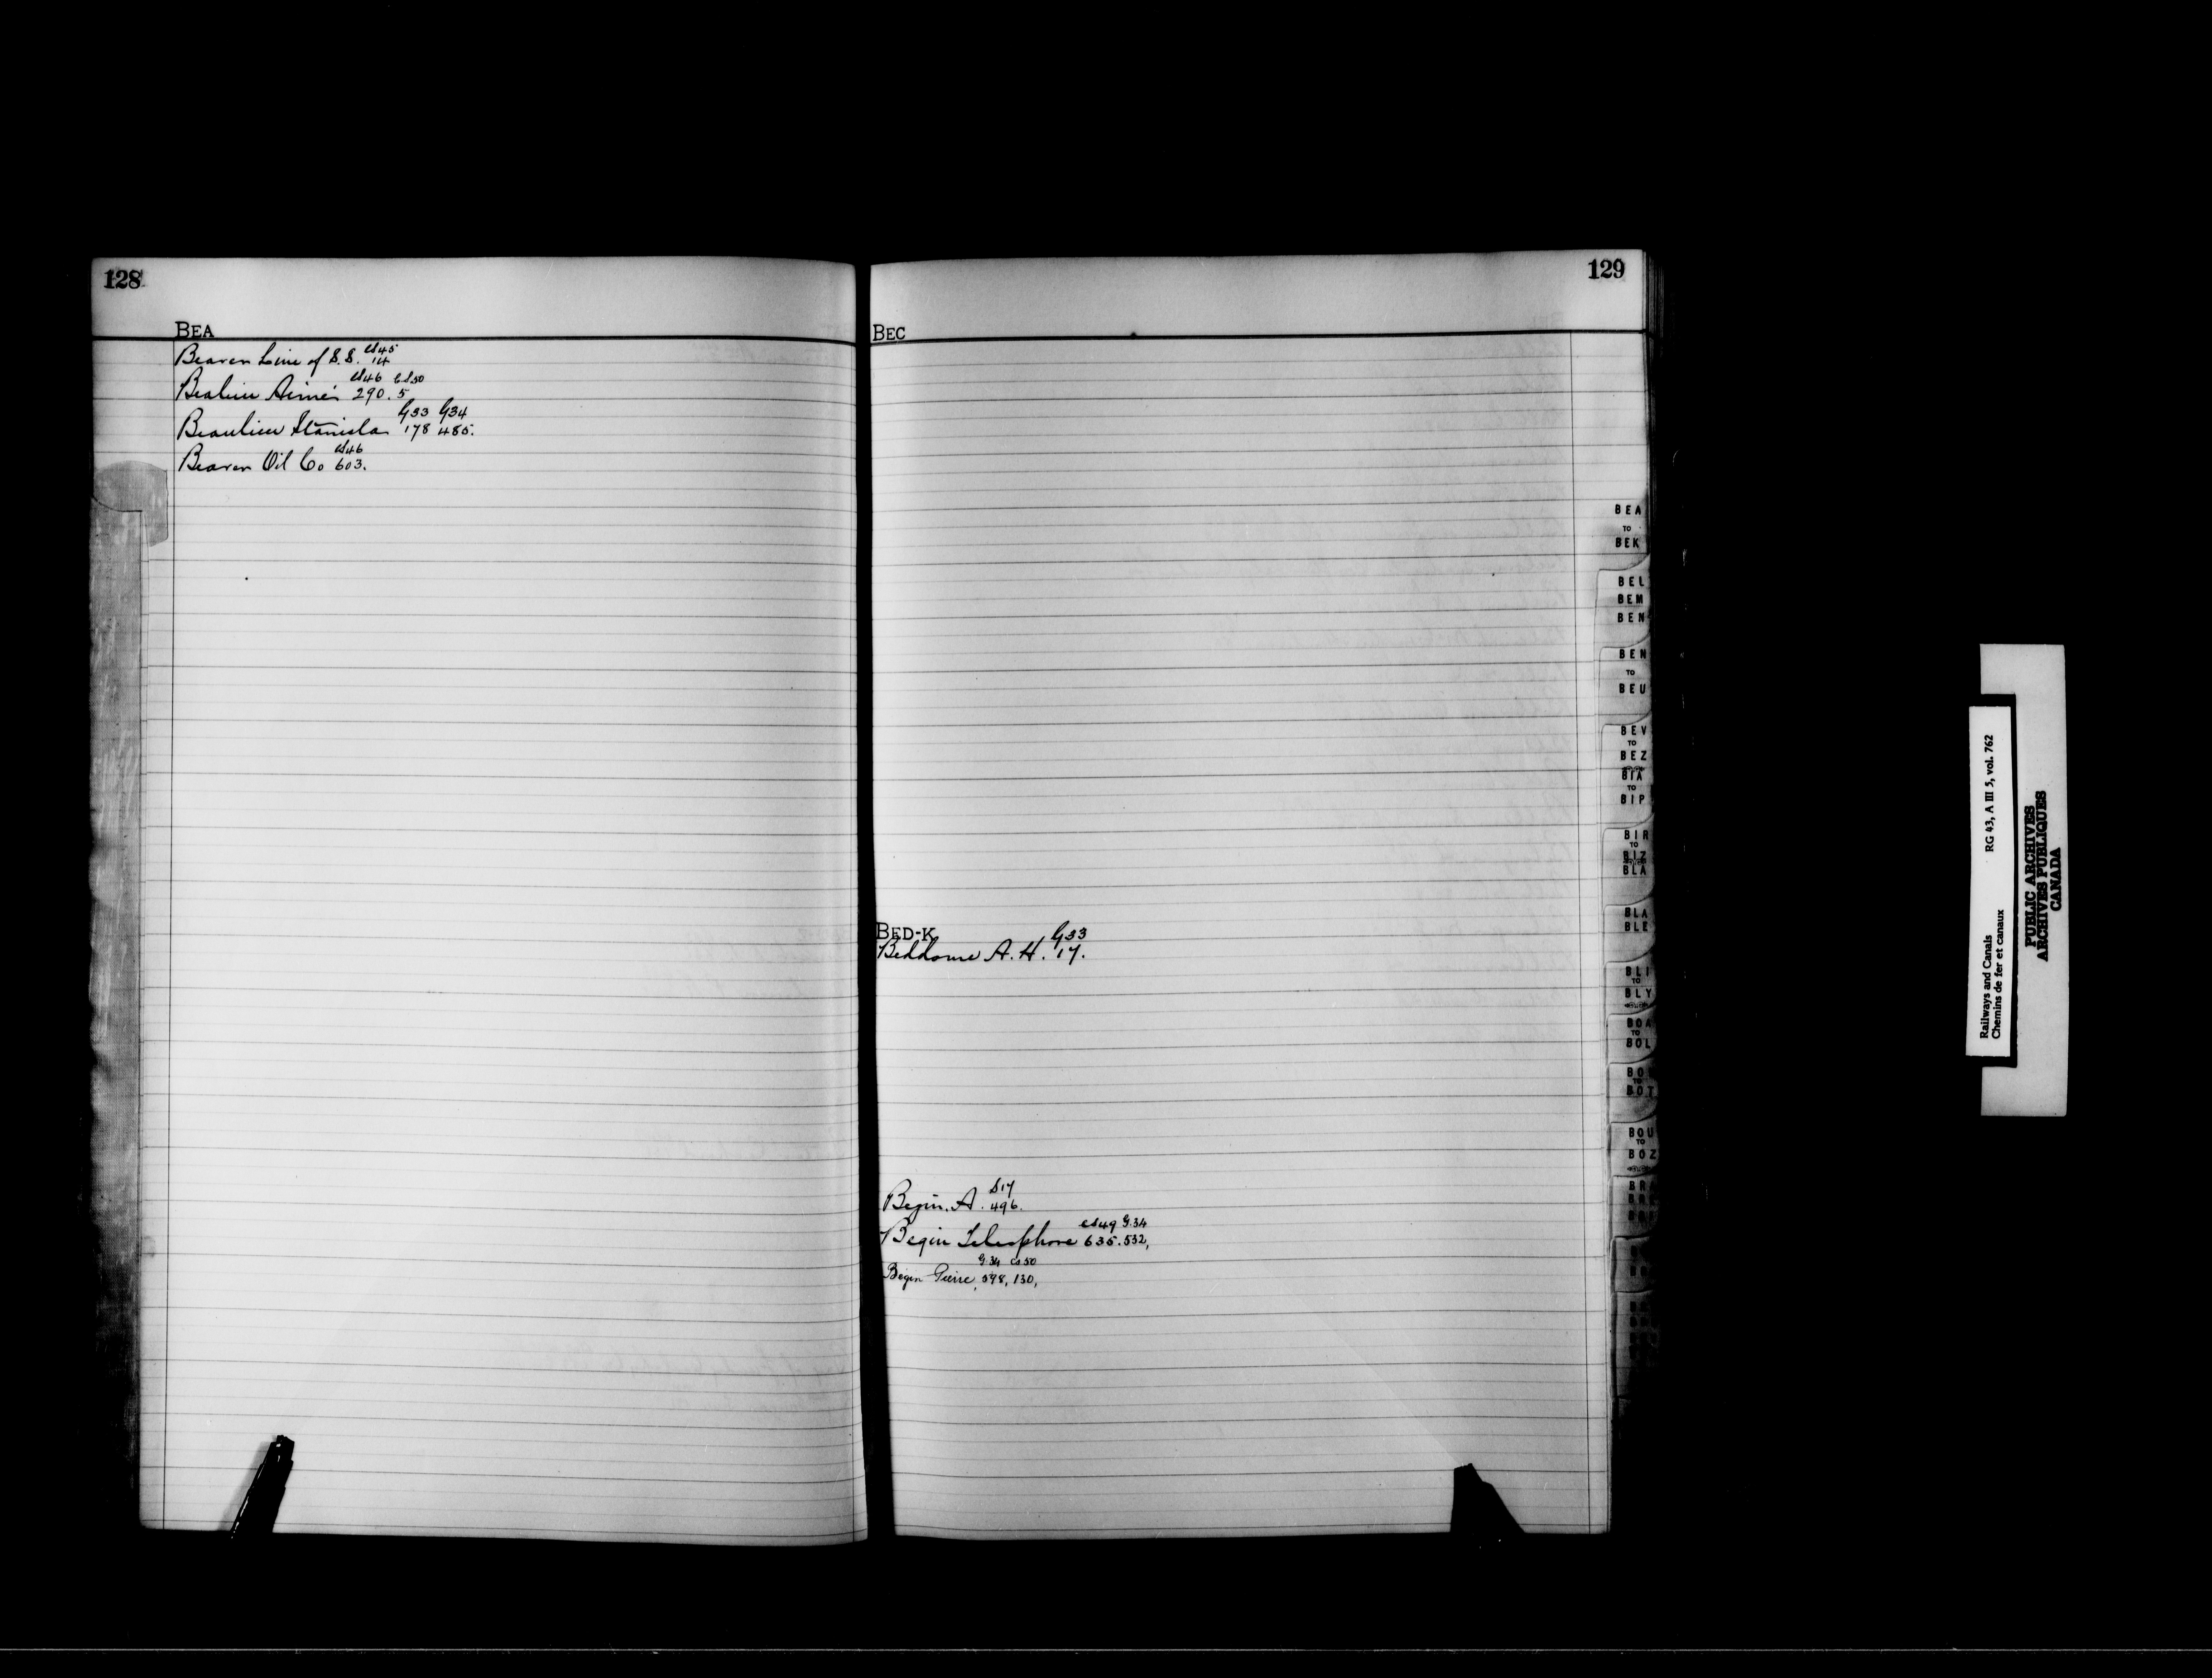 128
BEA
Beaver Line of S.S. cs45 14
Beaulieu Aimé cs46 290. cs50 5
Beaulieu Stanislas G33 178 G34 485.
Beaver Oil Co cs46 603.
129
BEC
BED-K
Beddome A. H. G33 17.
Begin. A. S17 496.
Begin Telesphore cs49 635. G.34 532,
Begin Pierre, G.34 598, cs50 130,
BEA
TO
BEK
BEL
BEM
BEN
BEN
TO
BEU
BEV
TO
BEZ
BIA
TO
BIP
BIR
TO
BIZ
BLA
BLA
BLE
BLI
TO
BLY
BOA
TO
BOL
TO
BOT
BOU
TO
BOZ
Railways and Canals RG 43, A III 5, vol. 762
Chemins de fer et canaux
PUBLIC ARCHIVES
ARCHIVES PUBLIQUES
CANADA